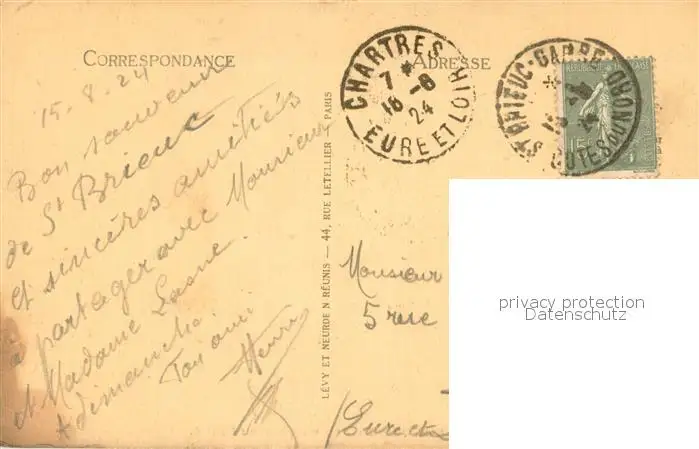 CORRESPONDANCE
ADRESSE
15-8-24
Bon souvenir
de St Brieuc
et sincères amitiés
à partager avec Monsieur
et Madame Lasne.
A dimanche.
Ton ami
Henri
LÉVY ET NEURDEIN RÉUNIS — 44, RUE LETELLIER, PARIS
CHARTRES
7 *
16 -8
24
EURE ET LOIR
ST BRIEUC-GARE
COTES DU NORD
15
Monsieur
5 rue
(Eure et
privacy protection
Datenschutz